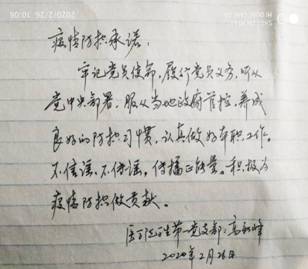 疫情防控承诺：
牢记党员使命，履行党员义务，听从
党中央部署，服从当地政府管控，养成
良好的防控习惯，认真做好本职工作。
不信谣、不传谣，传播正能量。积极为
疫情防控做贡献。
第一党支部：高
2020年2月26日